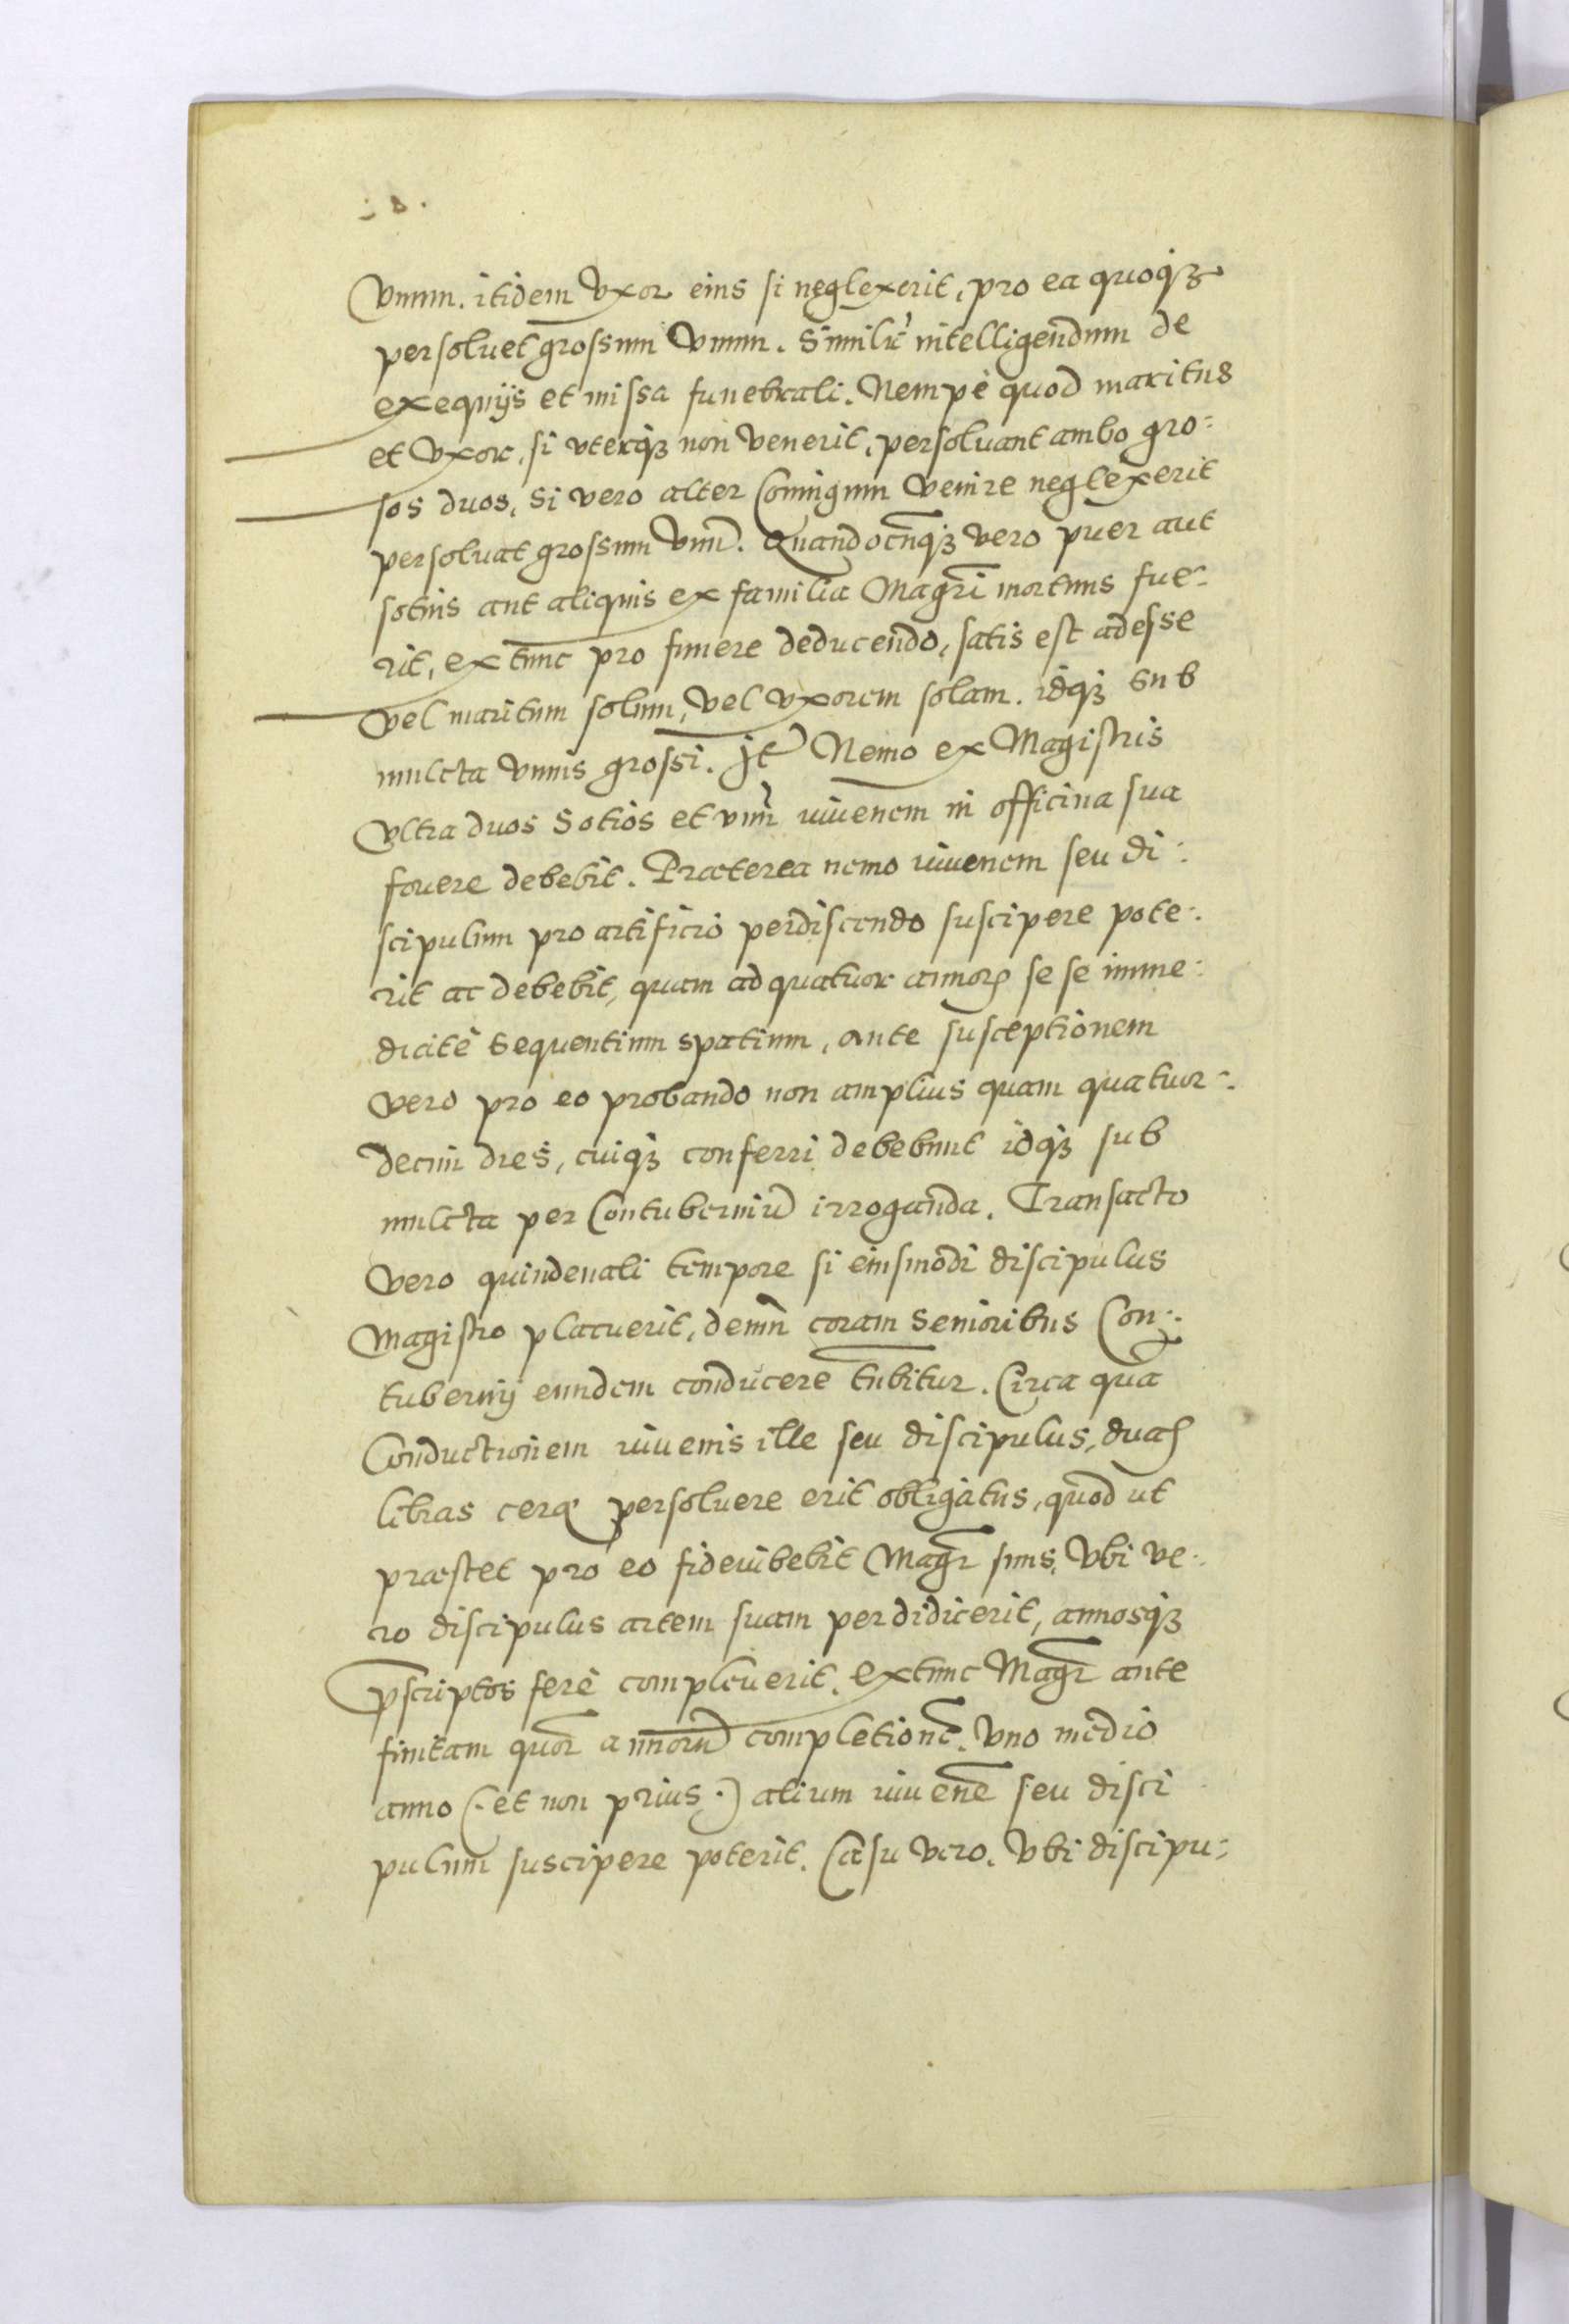 18.
Vnum. itidem Vxor eius si neglexerit, pro ea quoq3
persoluet grossum Vnum. Similir̃ intelligendum de
exequijs et missa funebrali. Nempè quod maritus
et Vxor, si vterq3 non Venerit, persoluant ambo gro:
sos duos, Si vero alter Coniugum Venire neglexerit
persoluat grossum Vnũ. Quandocũq3 vero puer aut
sotius aut aliquis ex familia Magr̃i mortuus fue:
rit, extunc pro funere deducendo, satis est adesse
Vel maritum solum, Vel Vxorem solam. idq3 sub
mulcta Vnius grossi. Jt̃ Nemo ex Magistris
Vltra duos Sotios et vnũ iuuenem in officina sua
fouere debebit. Præterea nemo iuuenem seu di:
scipulum pro artificio perdiscendo suscipere pote:
rit ac debebit, quam ad quatuor annoꝝ se se imme:
diatè Sequentium spatium, ante susceptionem
vero pro eo probando non amplius quam quatuor:
decim dies, cuiq3 conferri debebunt idq3 sub
mulcta per Contuberniũ irroganda. Transacto
Vero quindenali tempore si eiusmodi discipulus
Magistro placuerit, demũ coram Senioribus Con:
tubernij eundem conducere tñbitur. Circa quã
Conductionem iuuenis ille seu discipulus, duas
libras ceræ persoluere erit obligatus, quod ut
præstet pro eo fideiubebit Magr̃ suus, Vbi ve:
ro discipulus artem suam perdidicerit, annosq3
p̃scriptos ferè compleuerit, extunc Magr̃ ante
finitam quor̃ annorũ completionẽ, Vno medio
anno (: et non prius :) alium iuuenẽ seu disci
pulum suscipere poterit. Casu vero, Vbi discipu: